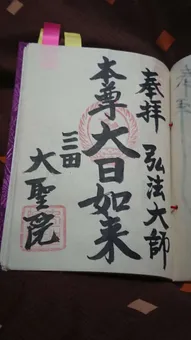 奉拝 弘法大師
本尊 大日如来
大聖院